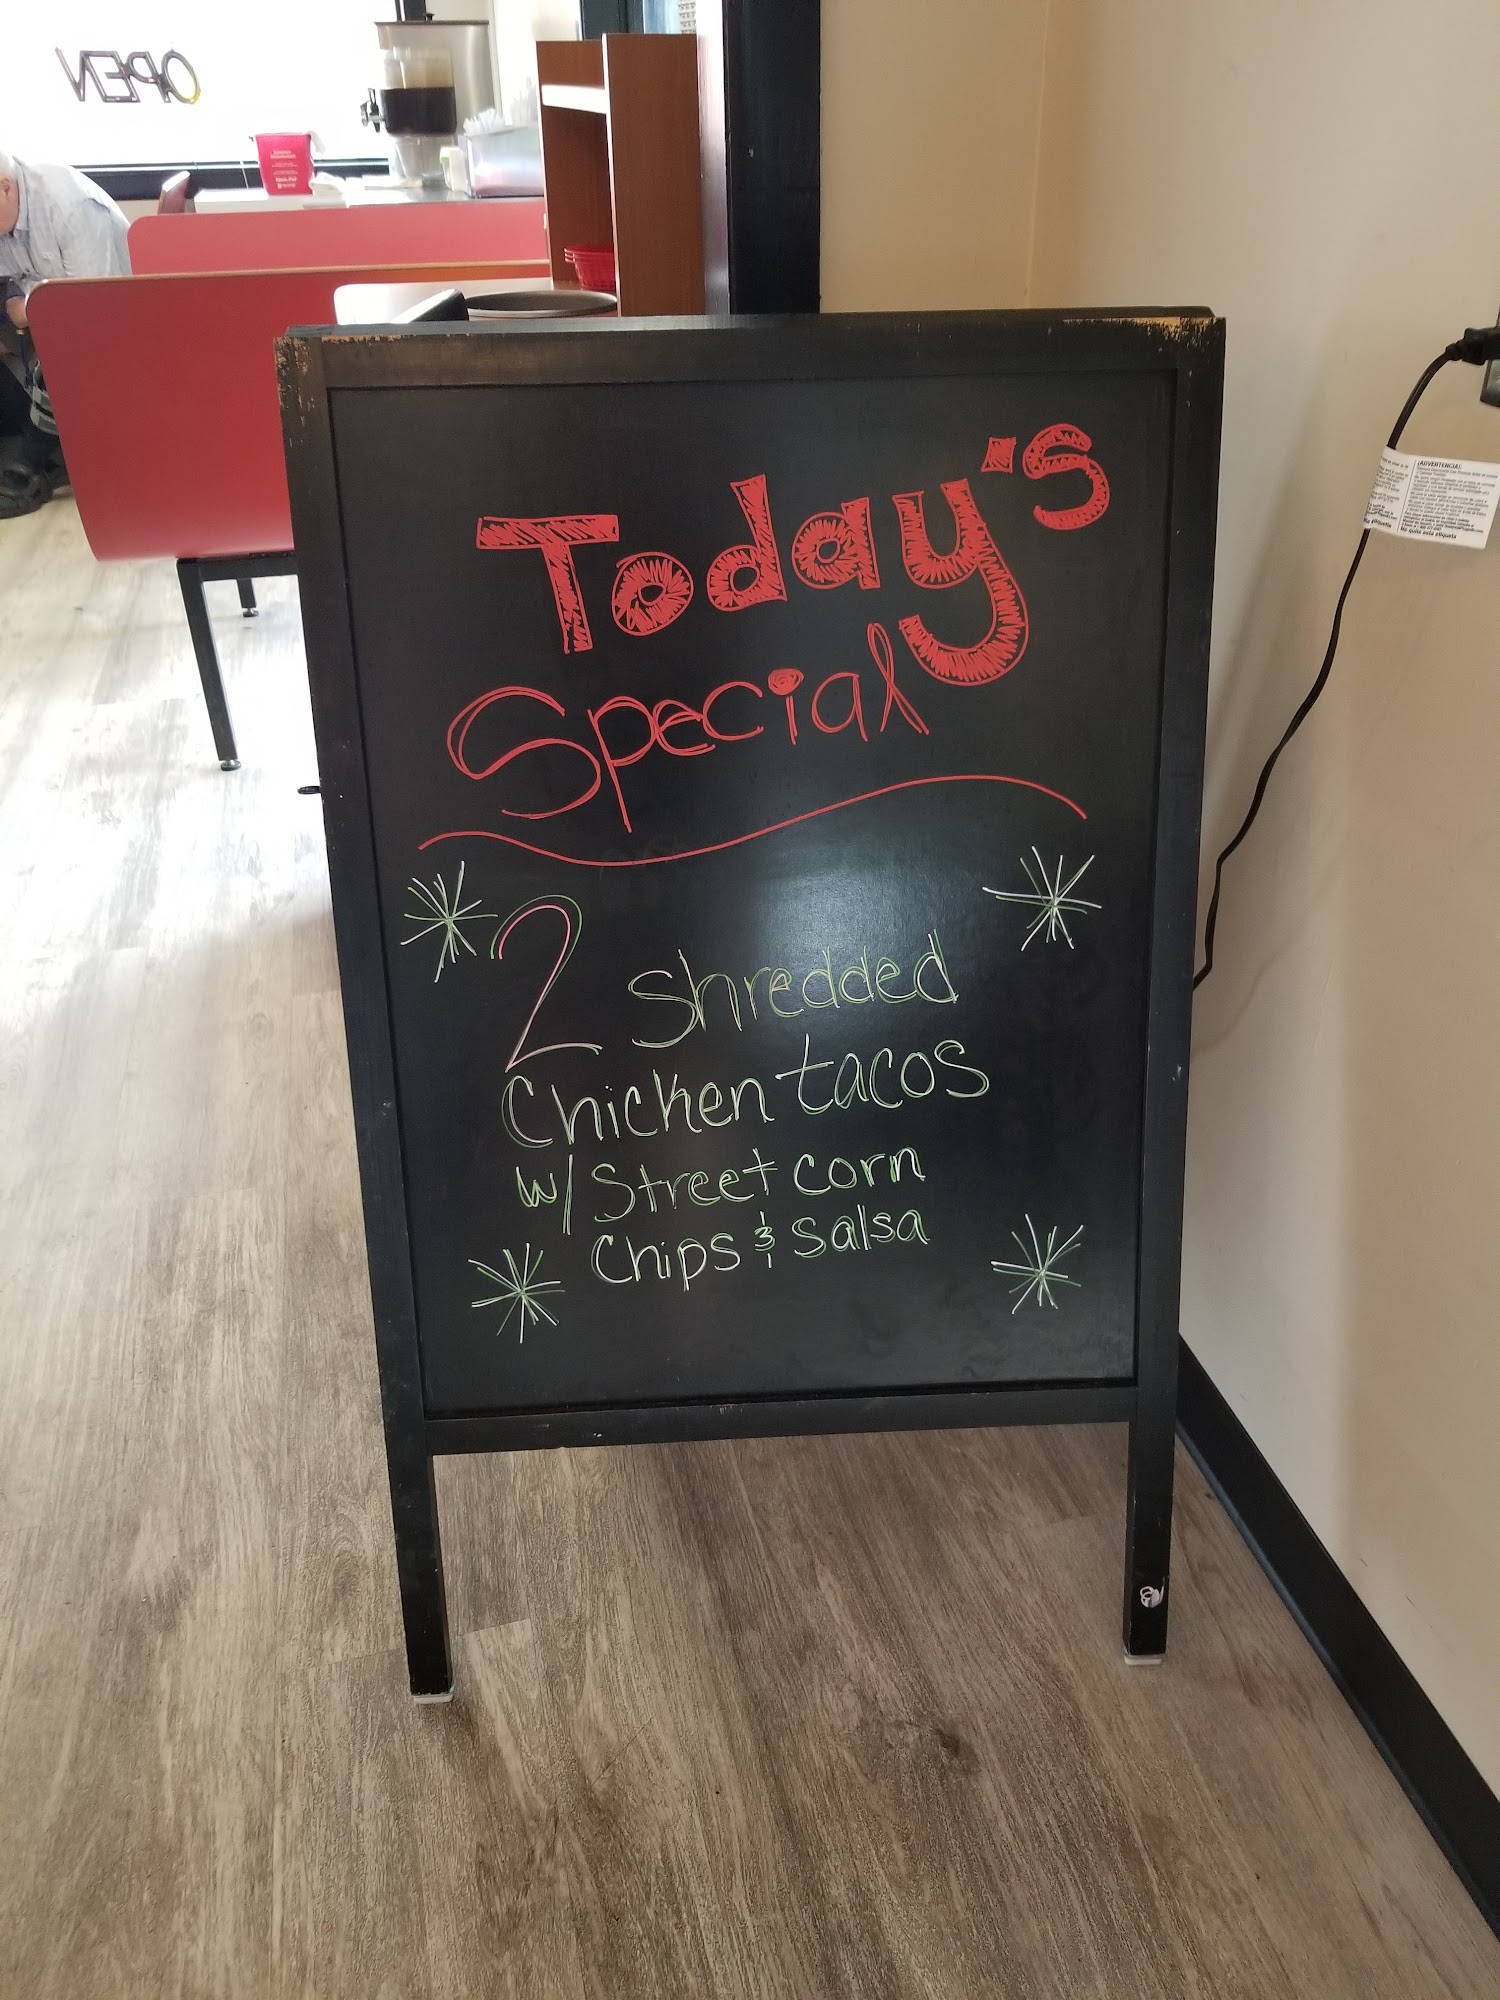 OPEN
Today's
Special
2 Shredded
Chicken tacos
w/ Street corn
Chips & Salsa
¡ADVERTENCIA!
No quite esta etiqueta